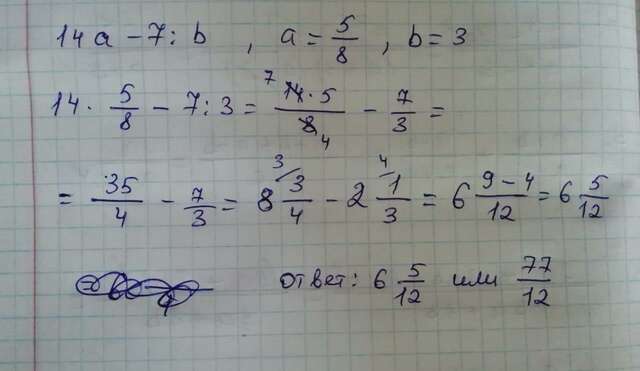 14a - 7 : b , a = 5/8 , b = 3
14 · 5/8 - 7 : 3 = 7 14 · 5 / 8 4 - 7/3 =
= 35/4 - 7/3 = 8 3/4 3/ - 2 1/3 4/ = 6 9-4/12 = 6 5/12
ответ: 6 5/12 или 77/12